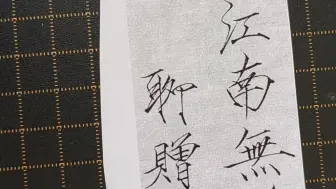 江南無
聊贈